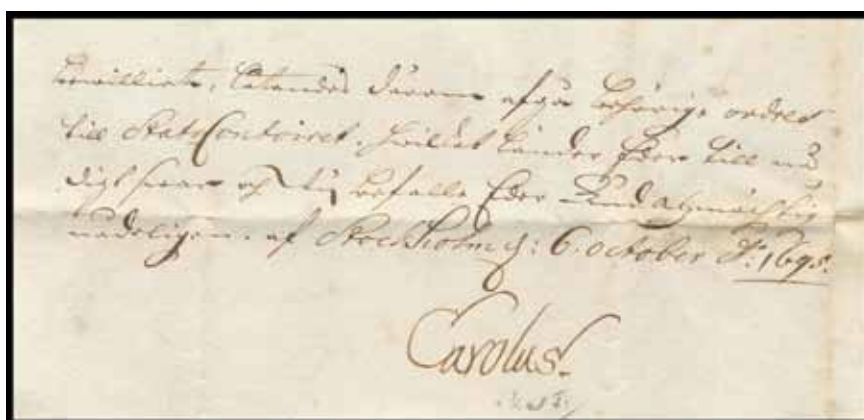 bewilliat, låtandes därom afgå behörige ordres
till StatsContoiret. hwilket länder Eder till nå-
digt swar och Wij befalle Eder Gud alzmächtig
nådeligen. af Stockholm d: 6. october A:o 1695.
Carolus.